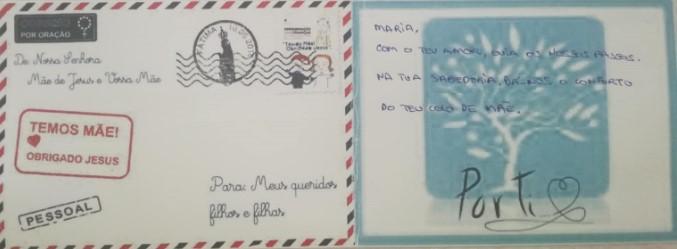 POR ORAÇÃO
De Nossa Senhora
Mãe de Jesus e Vossa Mãe
FÁTIMA
TEMOS MÃE!
OBRIGADO JESUS
PESSOAL
Para: Meus queridos
filhos e filhas
MARIA,
COM O TEU AMOR, GUIA OS NOSSOS PASSOS.
NA TUA SABEDORIA, DÁ-NOS O CONFORTO
DO TEU COLO DE MÃE.
Por Ti